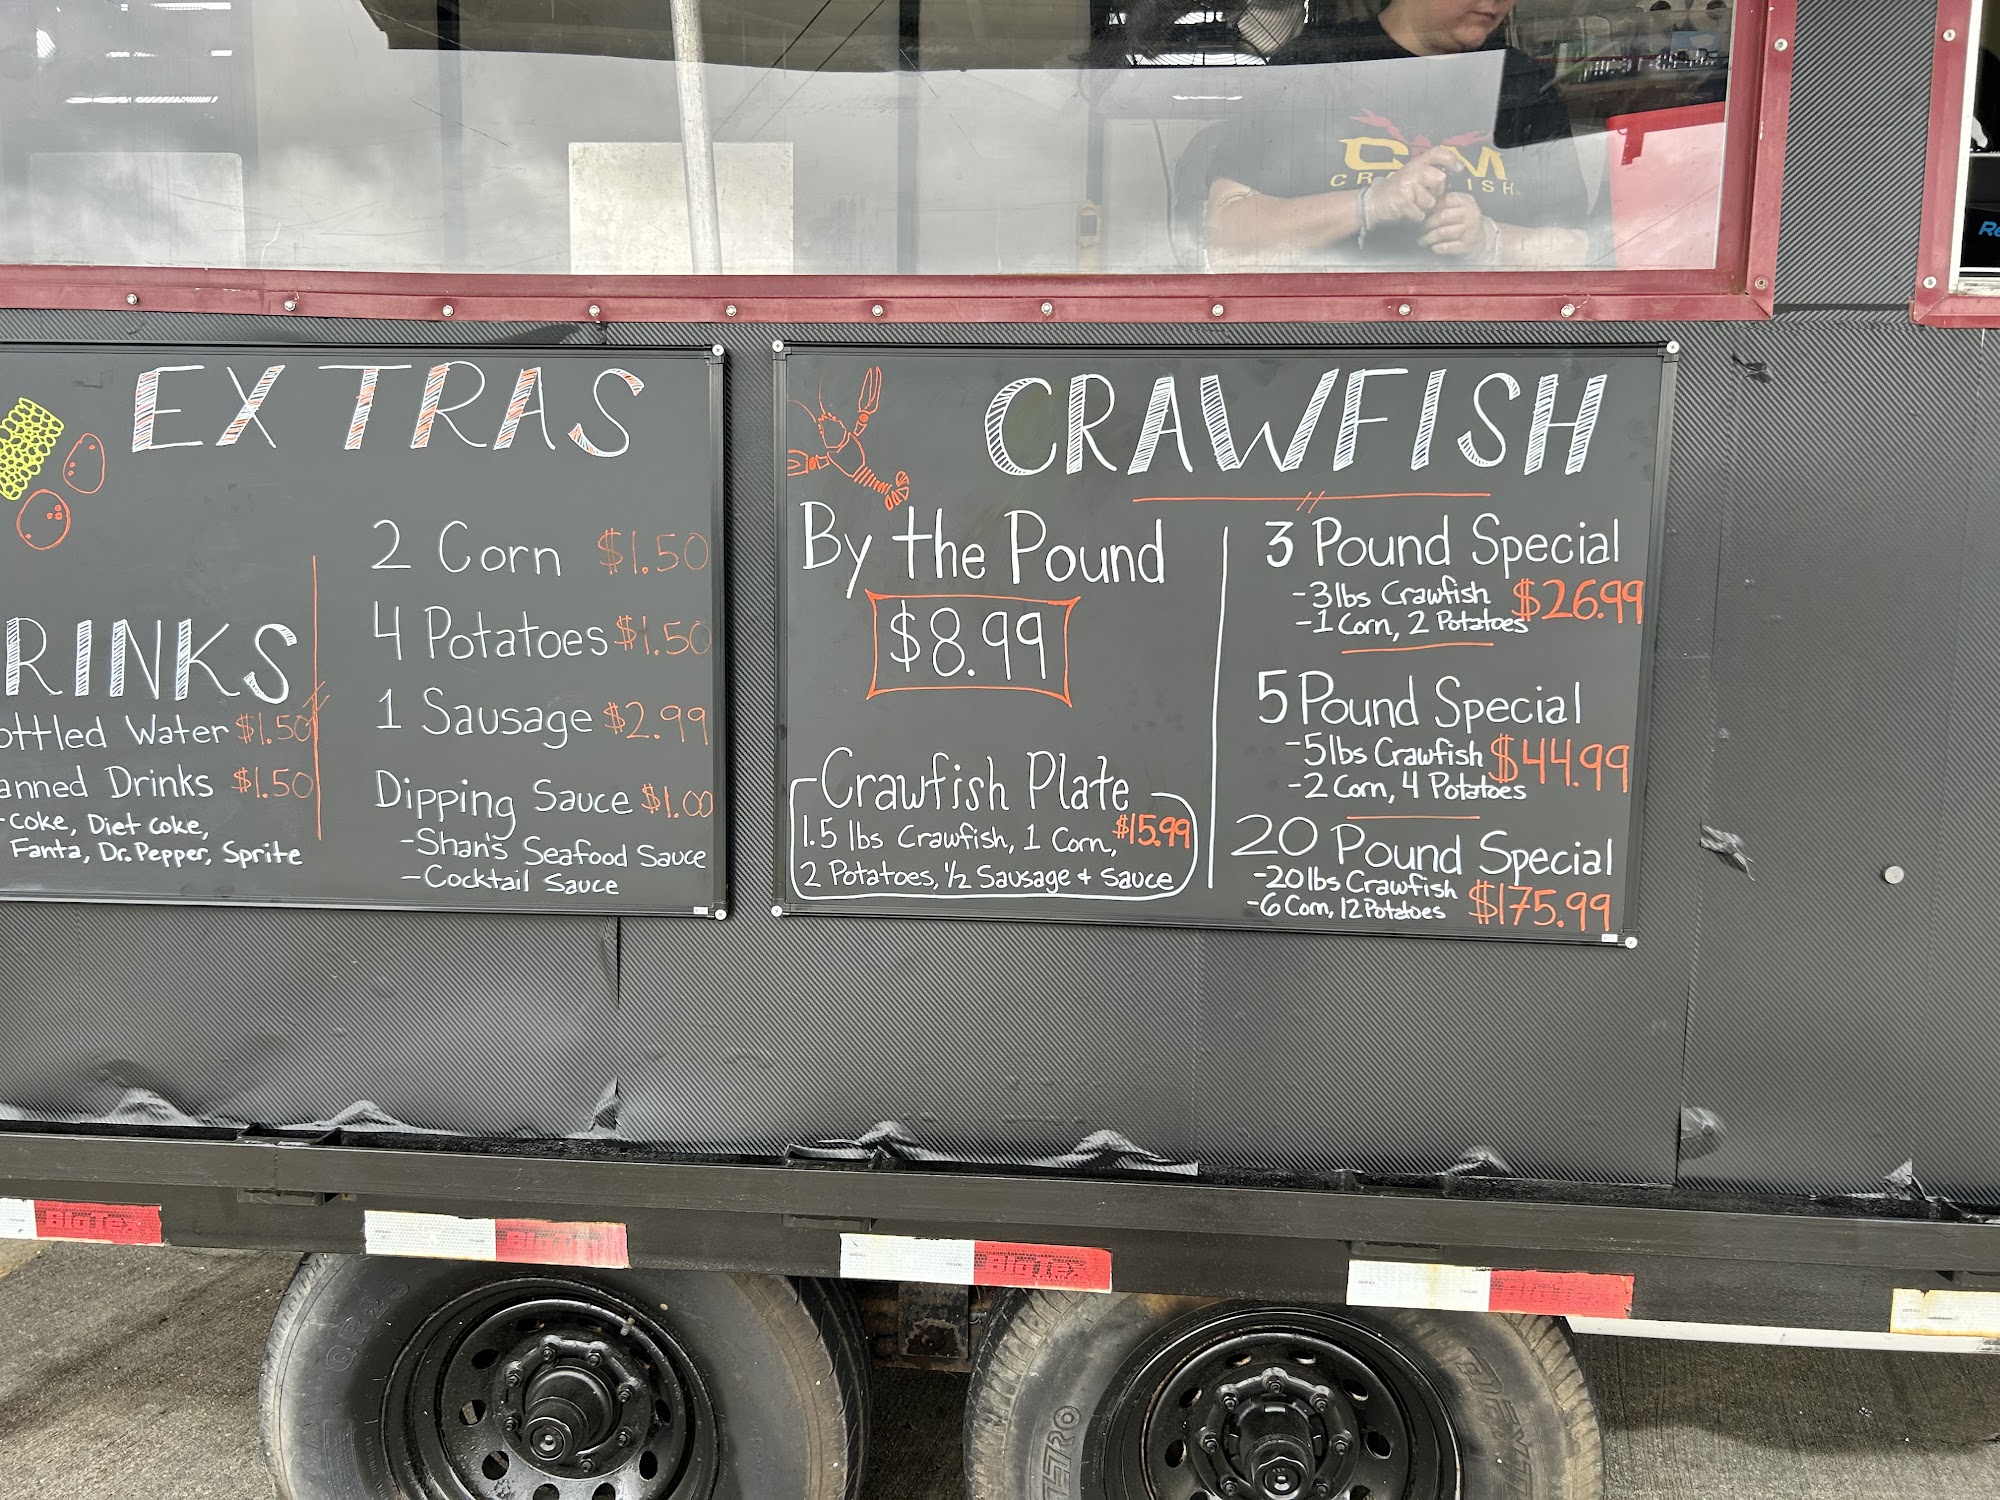 EXTRAS
2 Corn $1.50
4 Potatoes $1.50
1 Sausage $2.99
Dipping Sauce $1.00
-Shan's Seafood Sauce
-Cocktail Sauce
RINKS
ottled Water $1.50
anned Drinks $1.50
-Coke, Diet Coke,
Fanta, Dr. Pepper, Sprite
CRAWFISH
By the Pound
$8.99
Crawfish Plate
1.5 lbs Crawfish, 1 Corn, $15.99
2 Potatoes, 1/2 Sausage + Sauce
3 Pound Special
-3lbs Crawfish $26.99
-1 Corn, 2 Potatoes
5 Pound Special
-5lbs Crawfish $44.99
-2 Corn, 4 Potatoes
20 Pound Special
-20lbs Crawfish $175.99
-6 Corn, 12 Potatoes
BigTex
BigTex